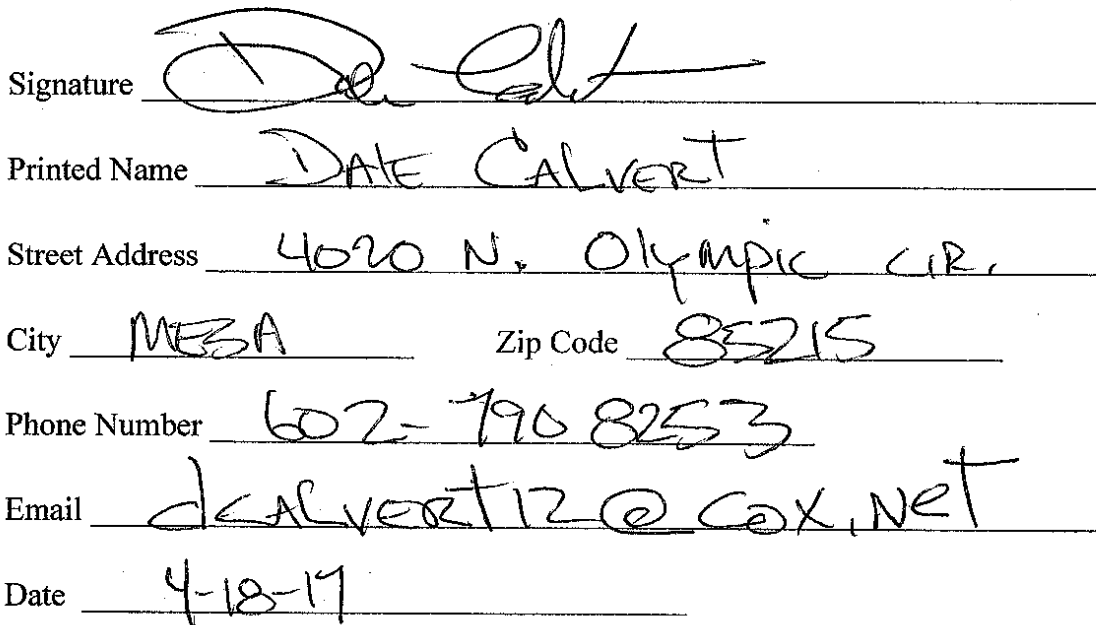 Signature Dale Calvert
Printed Name DALE CALVERT
Street Address 4020 N. Olympic CIR.
City MESA Zip Code 85215
Phone Number 602-790 8253
Email dCALVERT12@COX.Net
Date 4-18-17